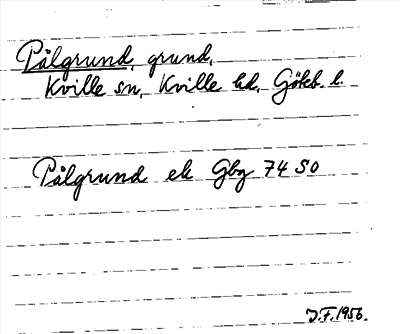 Pålgrund, grund,
Kville sn, Kville hd, Göteb. l.
Pålgrund ek Gbg 74 SO
J.F. 1956.